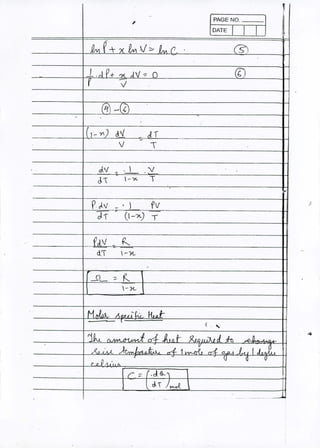 PAGE NO.
DATE
ln P + x ln V = ln C. ⑤
1/P dP + x/V dV = 0 ⑥
④ - ⑥
(1-x) dV/V = dT/T
dV/dT = 1/1-x · V/T
P dV/dT = 1/(1-x) PV/T
PdV/dT = R/1-x
Ω = R/1-x
Molar specific Heat
The amount of heat Required to change
raise temperature of 1 mole of gas by 1 degree
celsius
C = (dQ/dT)mol